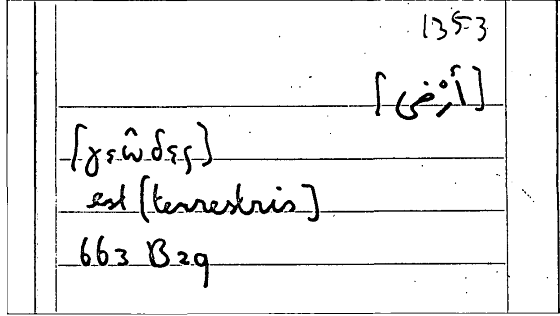 1353
[أرْضى]
[γεῶδες]
est [terrestris]
663 B29